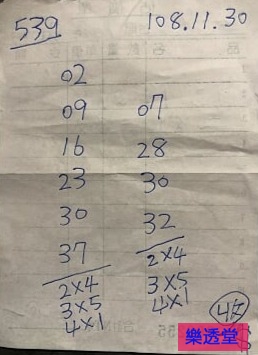 539
108.11.30
02
09
16
23
30
37
2×4
3×5
4×1
07
28
30
32
2×4
3×5
4×1
樂透堂